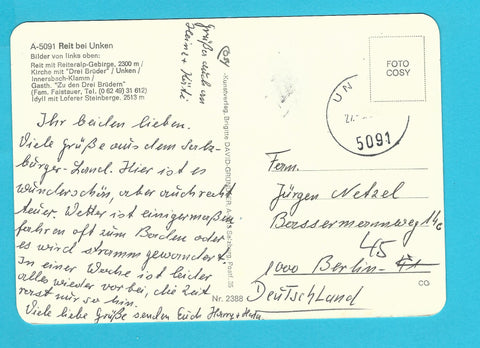 A-5091 Reit bei Unken
Bilder von links oben:
Reit mit Reiteralp-Gebirge, 2300 m /
Kirche mit "Drei Brüder" / Unken /
Innersbach-Klamm /
Gasth. "Zu den Drei Brüdern"
(Fam. Faistauer, Tel. (0 62 49) 31 612)
Idyll mit Loferer Steinberge, 2513 m
Grüße auch an
Heinz +
COSY -Kunstverlag, Brigitte DAVID-GRÜNDLER, Salzburg, Postf. 35
FOTO
COSY
UN
5091
Ihr beiden lieben.
Viele Grüße aus dem Salz-
burger-Land. Hier ist es
wunderschön, aber auch recht
teuer. Wetter ist einigermaßen
fahren oft zum Baden oder
es wird stramm gewandert.
In einer Woche ist leider
alles wieder vorbei, die Zeit
rast nur so hin.
Viele liebe Grüße senden Euch Harry +
Fam.
Jürgen Netzel
Bassermannweg 14c
45
1000 Berlin-
Deutschland
Nr. 2388
CG